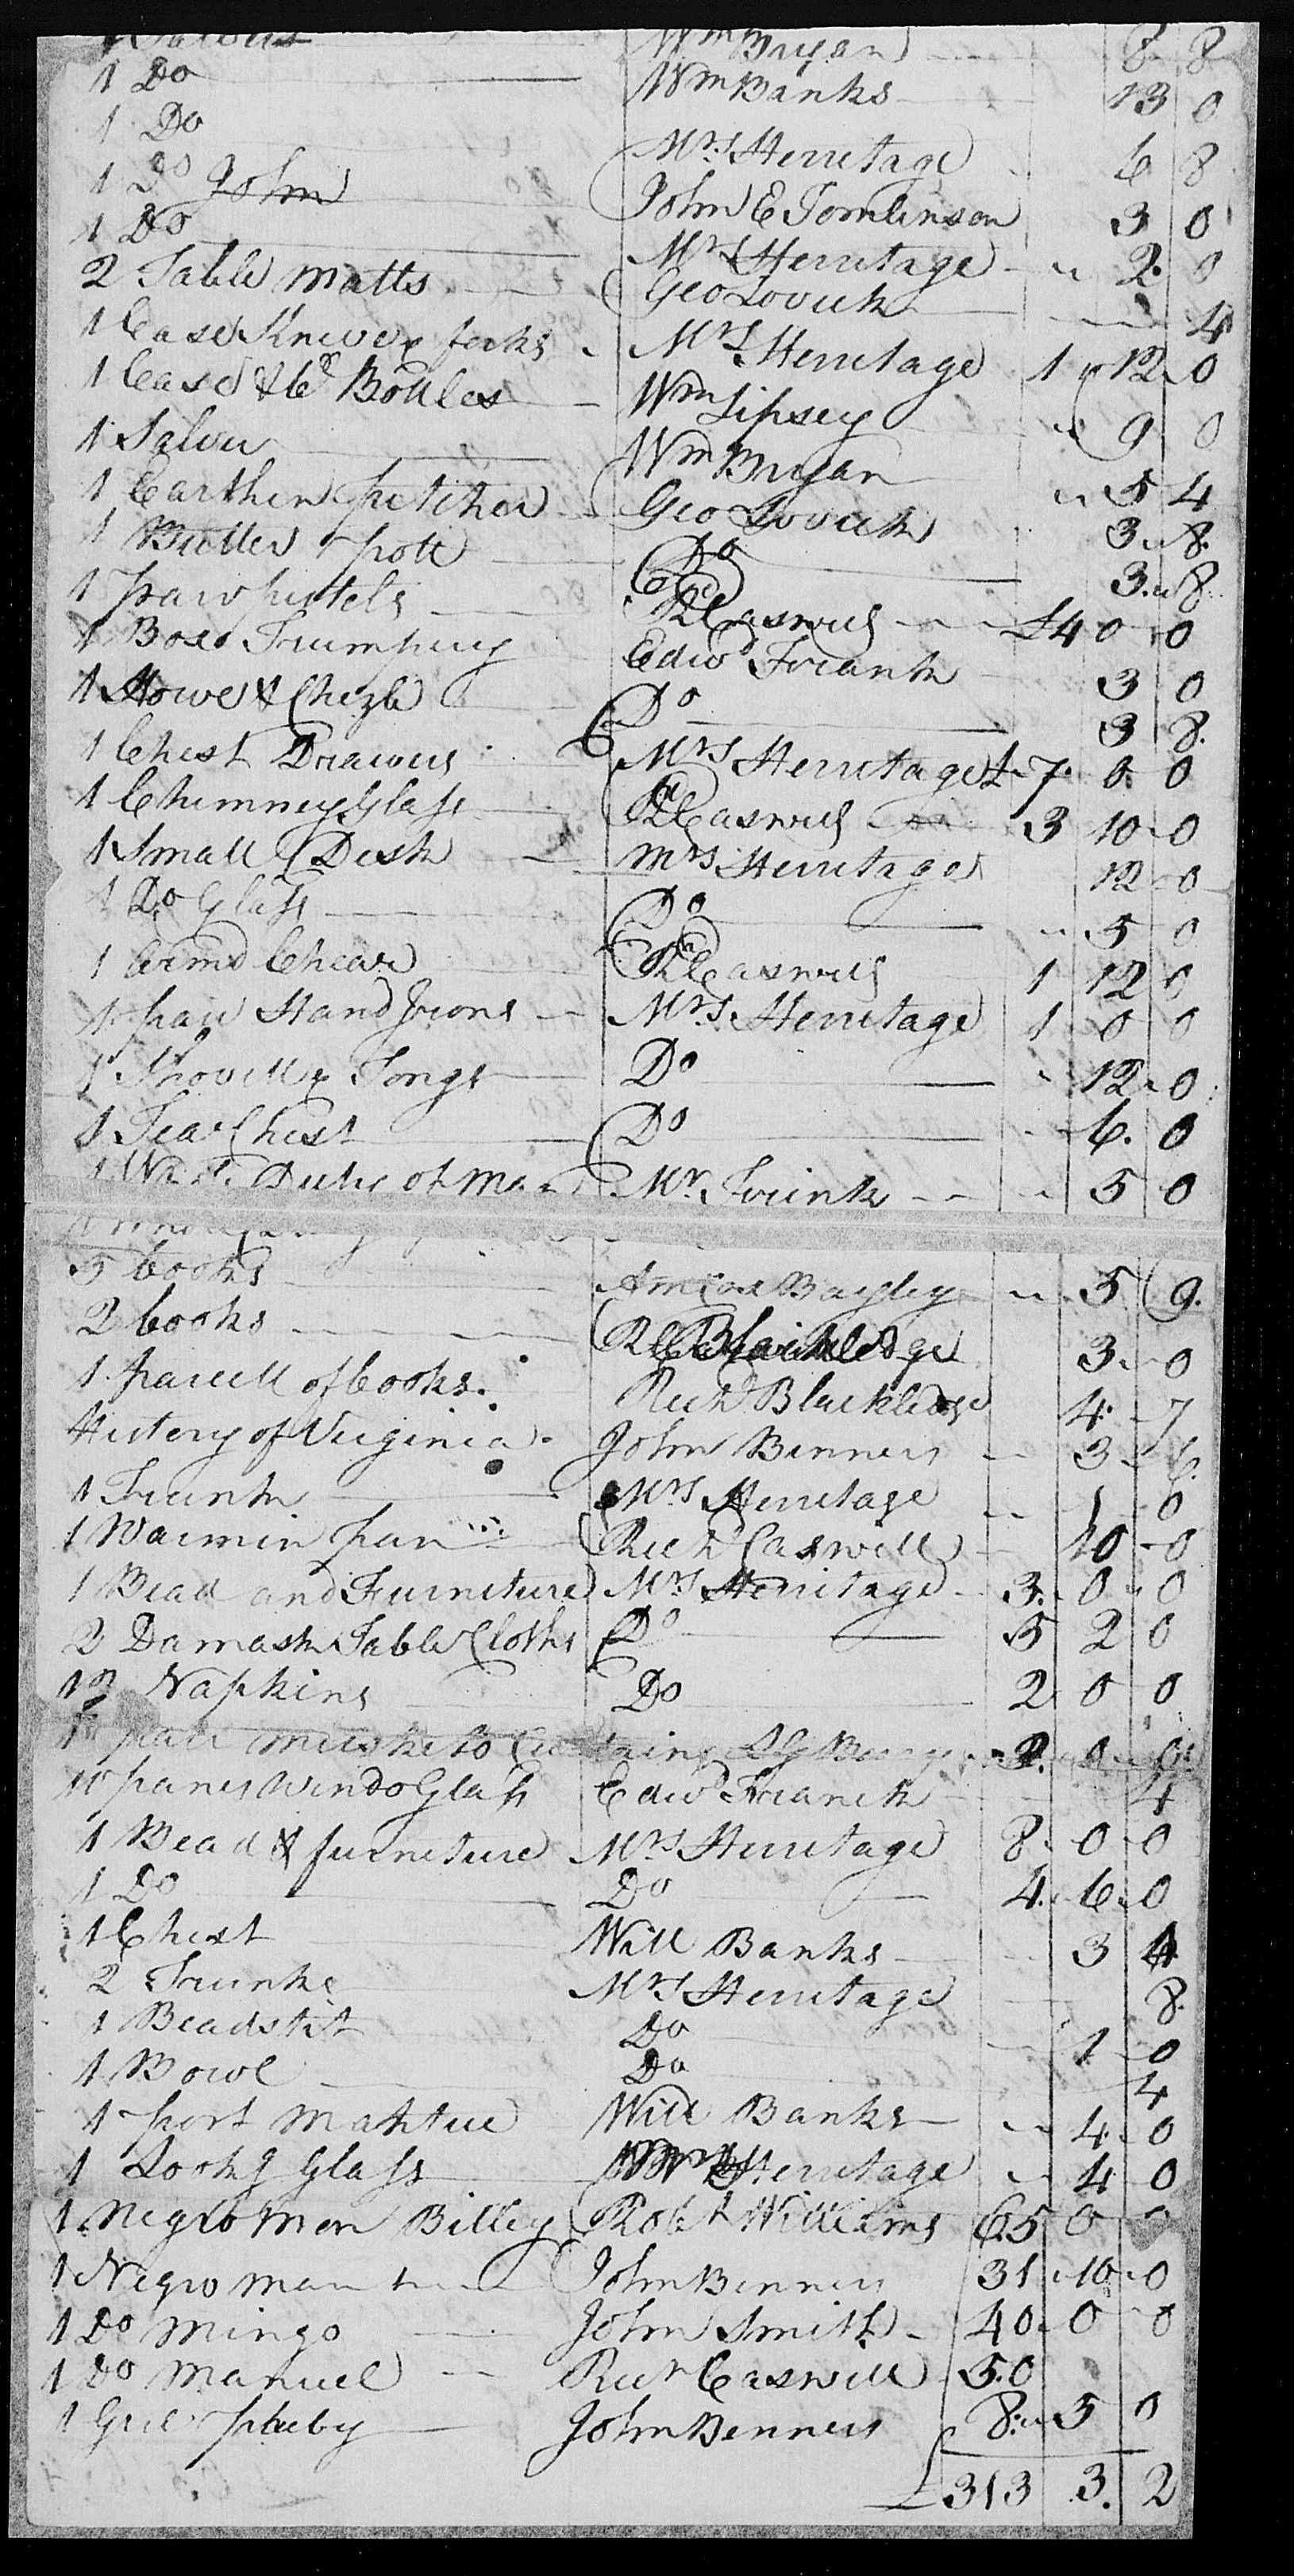 1 Salver Wm Bryan 8 8
1 Do Wm Banks 13 0
1 Do Mrs Herritage 6 8
1 Do John John E Tomlinson 3 0
1 Do Mrs Herritage 2 0
2 Table Matts Geo Lovick 4
1 Case Knive & forks Mrs Herritage 1 12 0
1 Case & 6 Bottles Wm Lipsey 9 0
1 Salver Wm Bryan 5 4
1 Earthen pitcher Geo Lovick 3 8
1 Butter pott Do 3 8
1 pr pistels Rd Caswell £4 0 0
1 Box Trumpery Edwd Franck 3 0
1 Howe & Chezle Do 3 8
1 Chest Drawers Mrs Herritage £7 0 0
1 Chimney Glass Rd Caswell 3 10 0
1 Small Desk Mrs Herritage 12 0
1 Do Glass Do 5 0
1 Armd Chear Rd Caswell 1 12 0
1 pair Hand Irons Mrs Herritage 1 0 0
1 Shovell & Tongs Do 12 0
1 Tea Chest Do 6 0
1 Duty of Man Mr Frink 5 0
5 books Amos Bayley 5 9
2 books 3 0
1 parcell of books Richd Blackledge 4 7
History of Virginia John Benners 3 6
1 Trunk Mrs Herritage 1 0
1 Warmin pan Richd Caswell 10 0
1 Bead and Furniture Mrs Herritage 3 0 0
2 Damask Table Cloths Do 5 2 0
12 Napkins Do 2 0 0
1 pair musketo 2 0 0
10 panes Windo Glass Edwd Franck 4
1 Bead & furneture Mrs Herritage 8 0 0
1 Do Do 4 6 0
1 Chest Will Banks 3 4
2 Trunks Mrs Herritage 8
1 Beadstit Do 1 0
1 Bowl Do 4
1 port Mantue Will Banks 4 0
1 Lookg Glass Herritage 4 0
1 Negro Man Billey Robt Williams 65 0 0
1 Negro man John Benners 31 10 0
1 Do Mingo John Smith 40 0 0
1 Do Manuel Richd Caswell 50
1 Girl pheby John Benners 8 5 0
£313 3 2